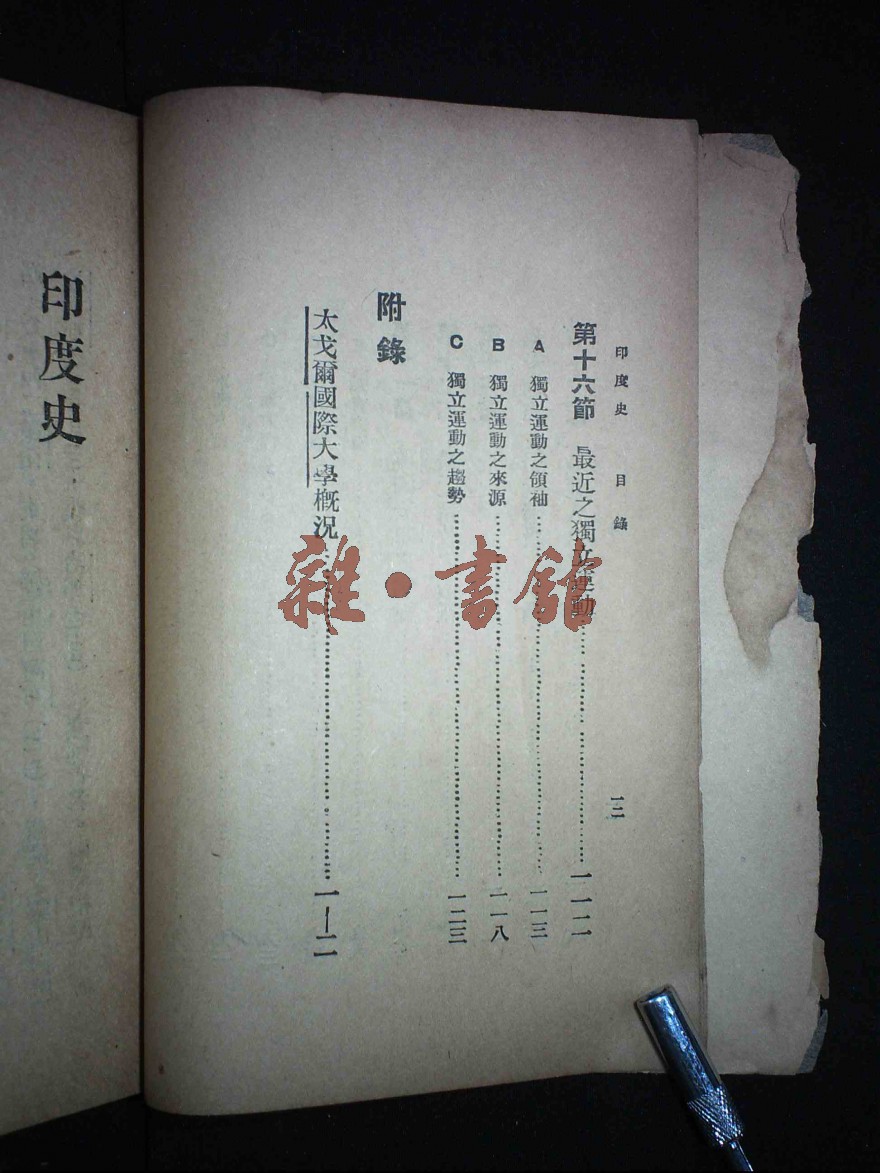 印度史 目錄 一二
第十六節 最近之獨立運動 一一二
A 獨立運動之領袖 一一三
B 獨立運動之來源 一一八
C 獨立運動之趨勢 一二三
附錄
太戈爾國際大學概況 一—二
印度史
雜·書館